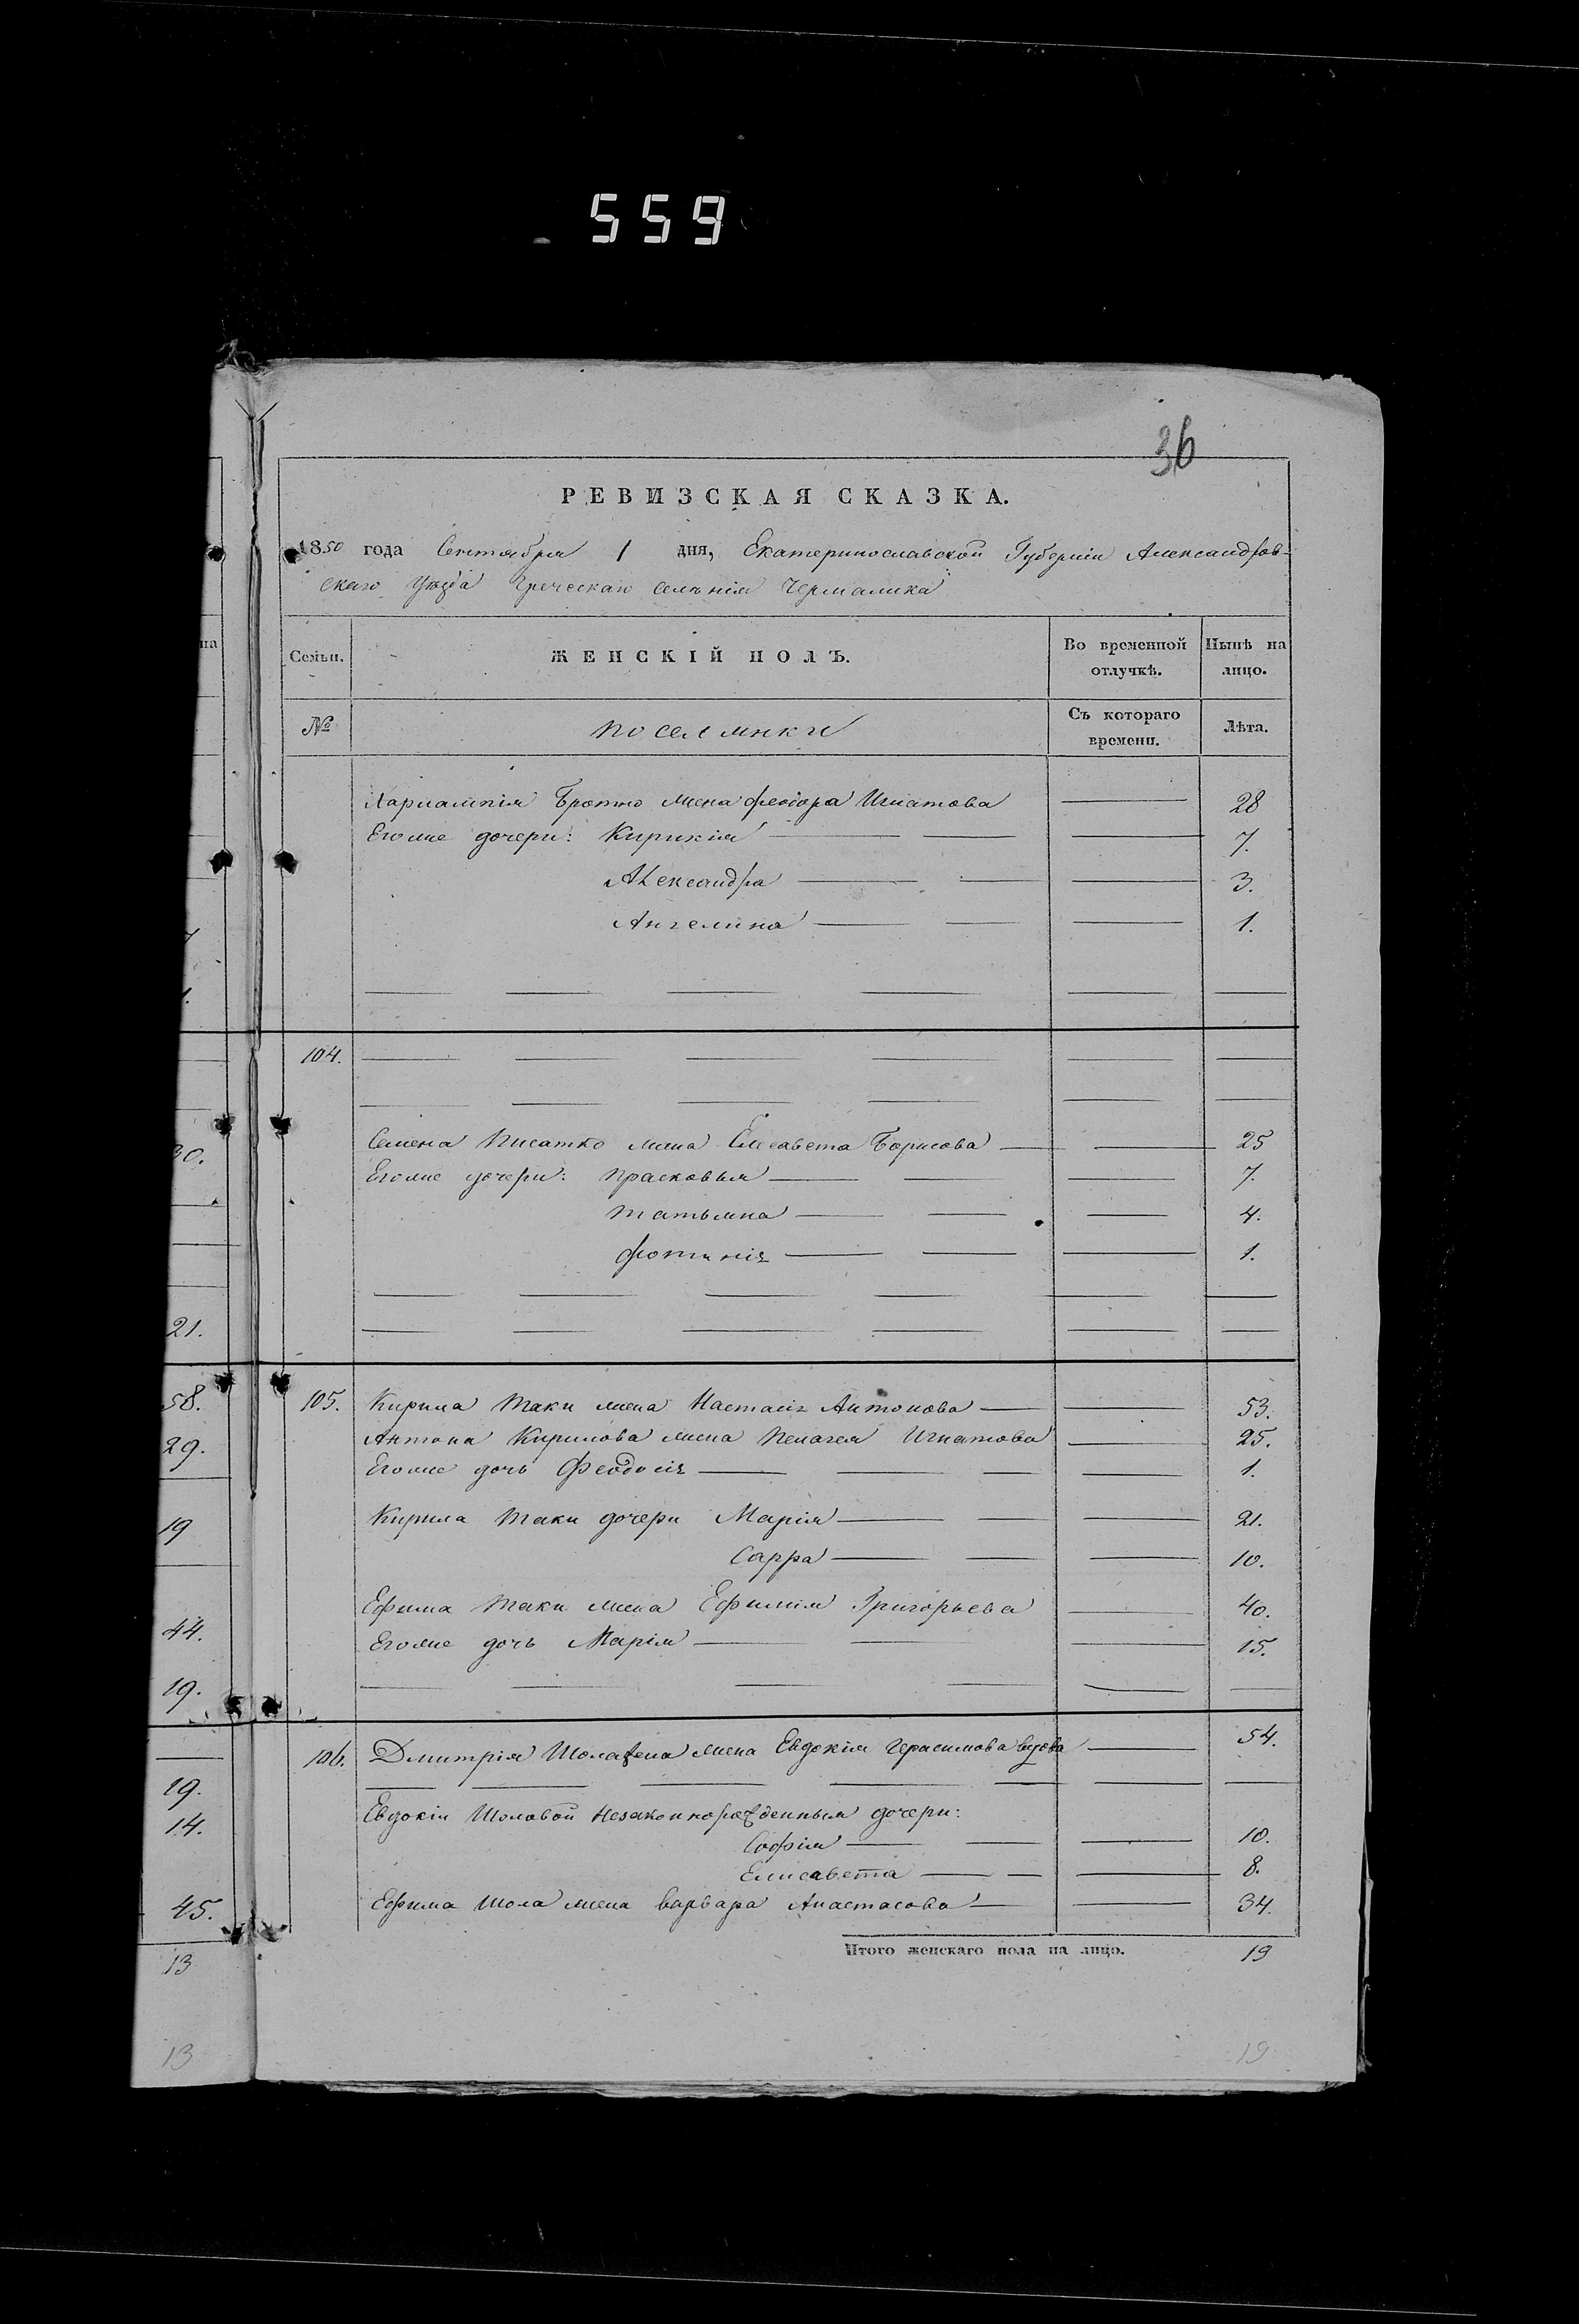 559
36
РЕВИЗСКАЯ СКАЗКА.
1850 года Сентября 1 дня, Екатеринославской Губернiи Александров-
скаго Уѣзда Греческаго селѣнiя Чермалика
на
Семьи. ЖЕНСКIЙ ПОЛЪ. Во временной отлучкѣ. Нынѣ на лицо.
№ Поселянки Съ котораго времени. Лѣта.
Харлампiя жена Феодора Игнатова 28
Егоже дочери: Кирикiя 7.
Александра 3.
Ангелина 1.
104.
Семена Писатко жена Елисавета Борисова 25
30.
Егоже дочери: Прасковья 7.
Татьяна 4.
Фотинiя 1.
21.
58. 105. Кирила Таки жена Настасiя Антонова 53.
29. Антона Кирилова жена Пелагея Игнатова 25.
Егоже дочь Феодосiя 1.
19 Кирила Таки дочери Марiя 21.
Сарра 10.
Ефима Таки жена Ефимiя Григорьева 40.
44. Егоже дочь Марiя 15.
19.
106. Дмитрiя жена Евдокiя Герасимова вдова 54.
19.
14. Евдокiи Шоловой незаконнорожденныя дочери:
Софiя 10.
Елисавета 8.
45. Ефима Шола жена Варвара Анастасова 34.
Итого женскаго пола на лицо. 19
13
13 19